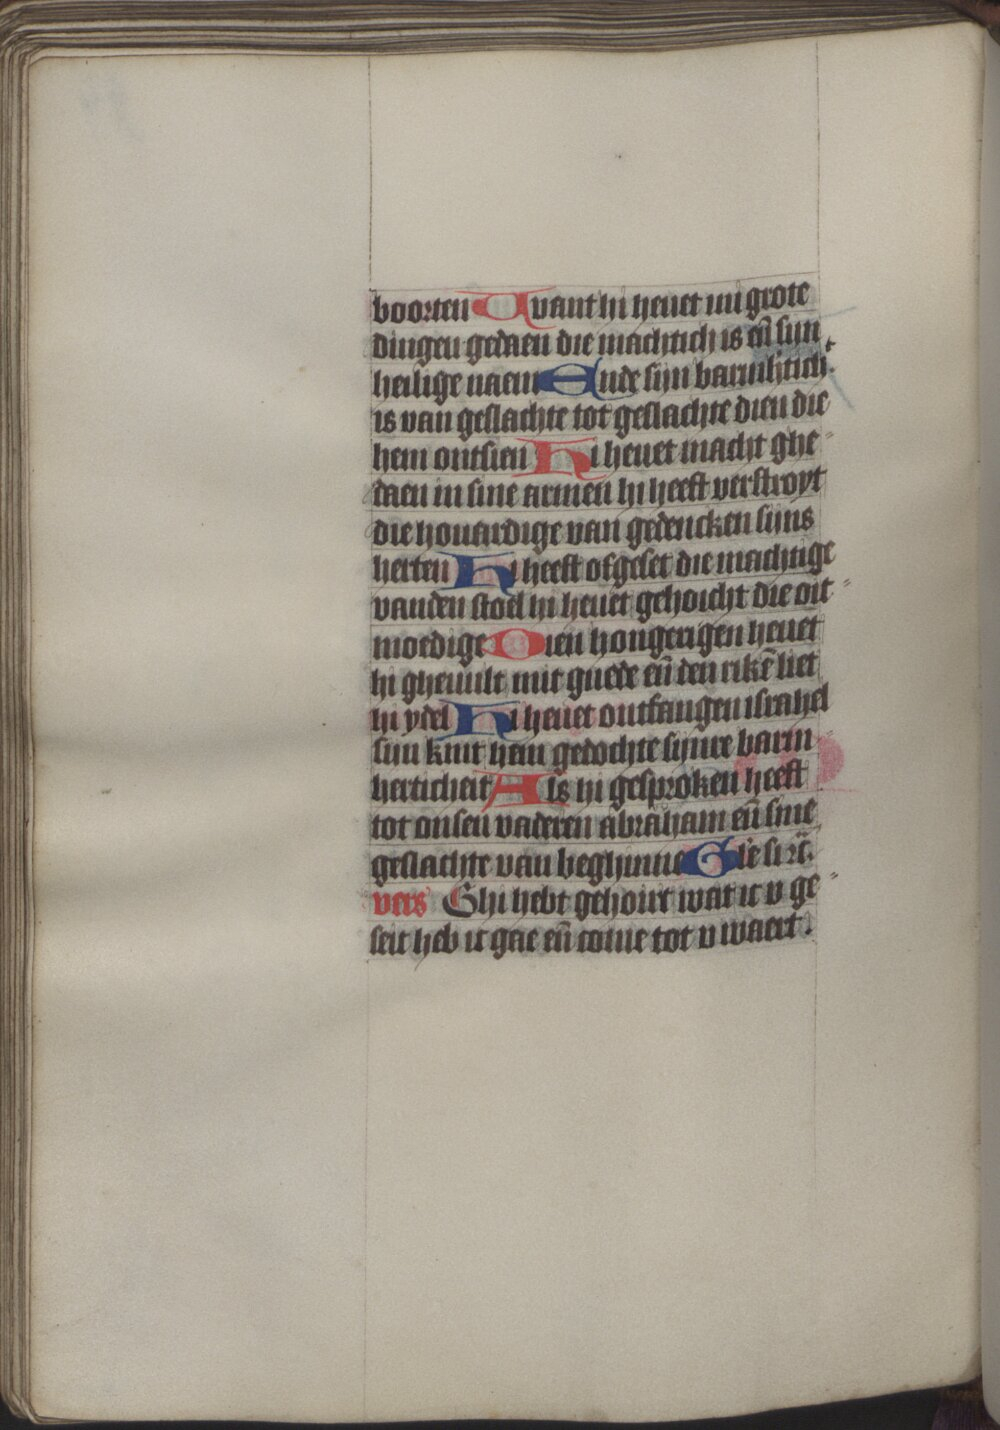 boorten Want hi heuet mi grote
dingen gedaen die machtich is eñ sijn
heilige naem Ende sijn barmh̃tich
is van geslachte tot geslachte dien die
hem ontsien Hi heuet macht ghe
daen in sine armen hi heeft verstroyt
die houardige van gedencken sijns
herten Hi heeft ofgeset die machtige
vanden stoel hi heuet gehoicht die oit
moedige Dien hongerigen heuet
hi gheuult mit guede eñ den rikē liet
hi ydel Hi heuet ontfangen israhel
sijn kint hem gedochte sijnre barm
herticheit Als hi gesproken heeft
tot onsen vaderen abraham eñ sine
geslachte van beghinne Gle si
vers Ghi hebt gehoirt wat ic v ge
seit heb ic gae eñ come tot v waert.